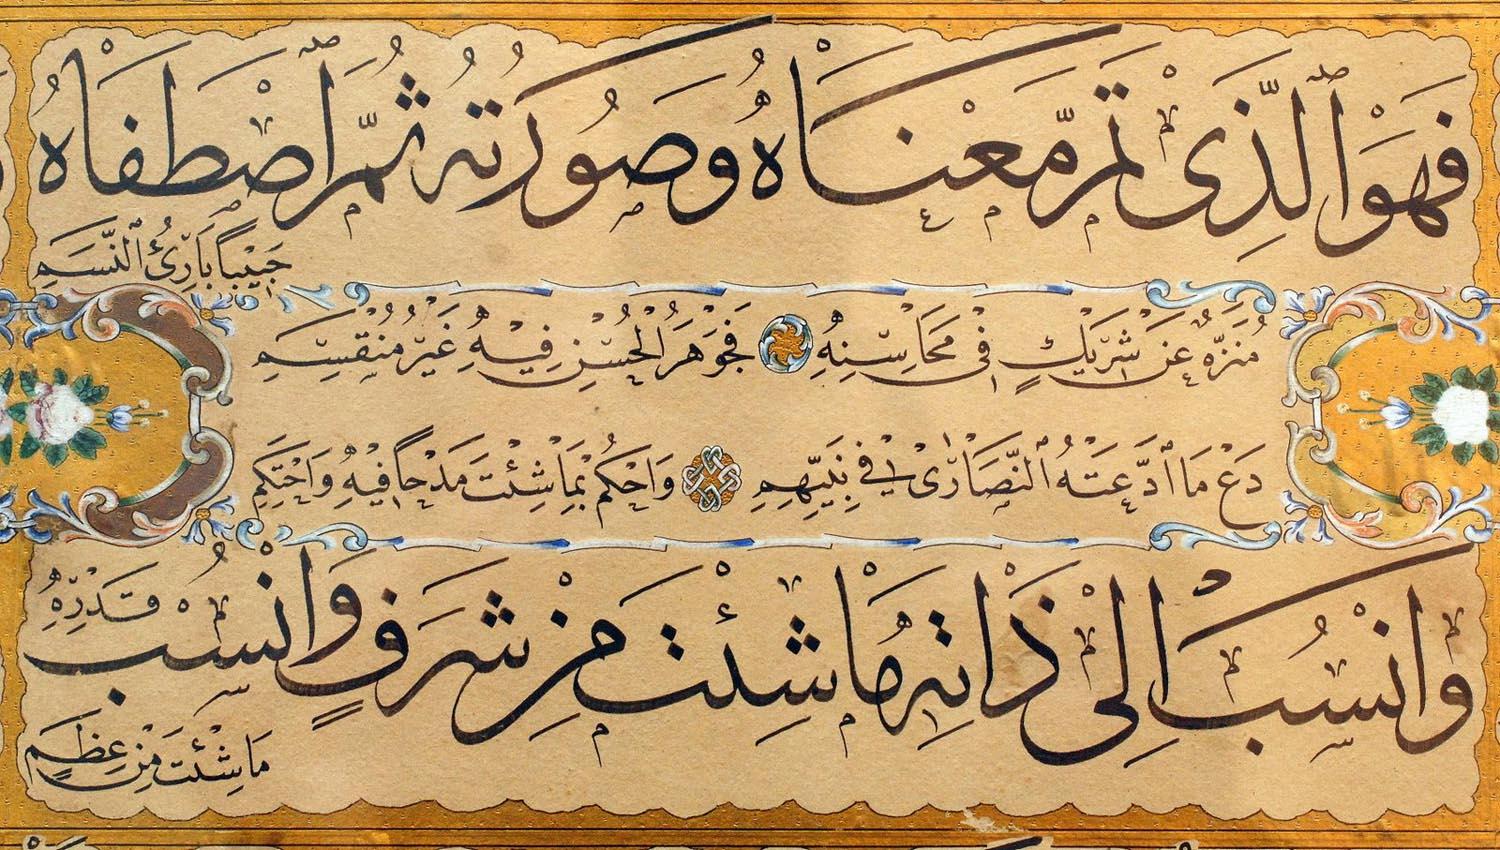 فَهْوَ الَّذِى تَمَّ مَعْنَاهُ وَصُورَتُهُ ثُمَّ اصْطَفَاهُ
حَبِيبًا بَارِئُ النَّسَمِ
مُنَزَّهٌ عَنْ شَرِيكٍ فِى مَحَاسِنِهِ فَجَوْهَرُ الْحُسْنِ فِيهِ غَيْرُ مُنْقَسِمِ
دَعْ مَا ادَّعَتْهُ النَّصَارٰى فِى نَبِيِّهِمِ وَاحْكُمْ بِمَا شِئْتَ مَدْحًا فِيهِ وَاحْتَكِمِ
وَانْسُبْ اِلٰى ذَاتِهِ مَا شِئْتَ مِنْ شَرَفٍ وَانْسُبْ اِلٰى قَدْرِهِ
مَا شِئْتَ مِنْ عِظَمِ